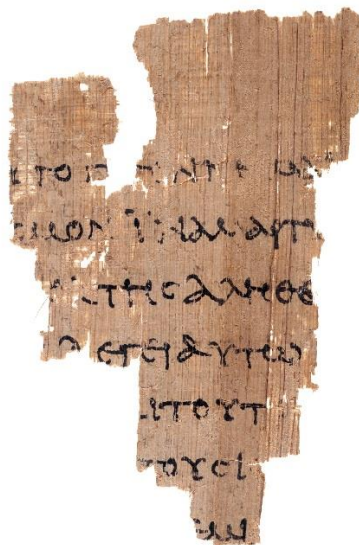 ΤΟ Γ ΝΝΗΜΑΙ
ϹΜΟΝ ΙΝΑ ΜΑΡΤΥ
ΚΤΗϹΑΛΗΘΕ
ΛΕΓΕΙΑΥΤΩ
ΙΤΟΥΤ
ΤΟΥϹΙ
ΜΙ